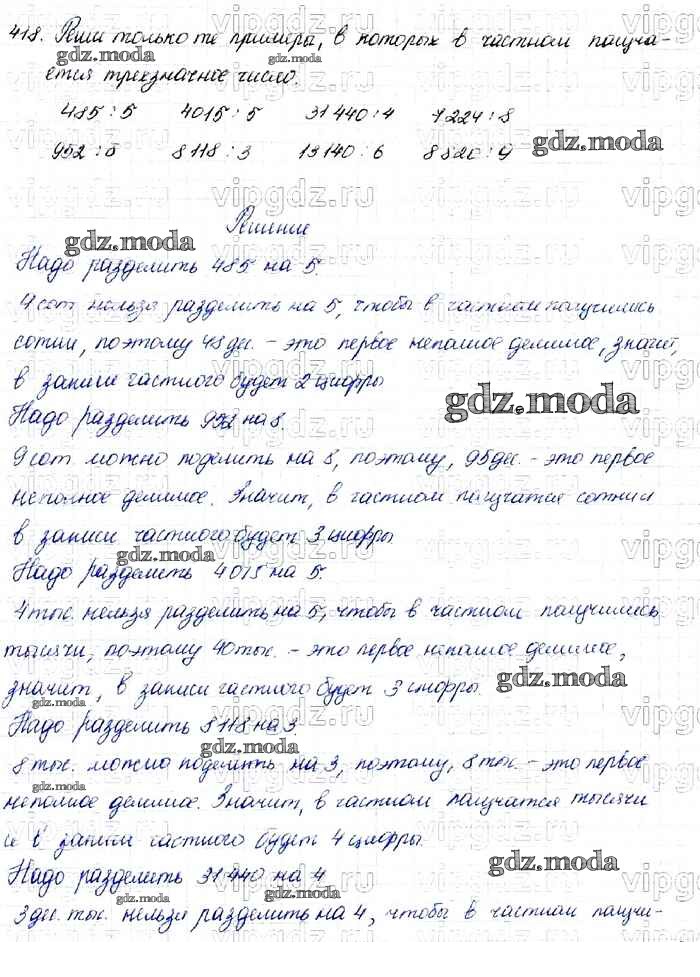 418. Реши только те примеры, в которых в частном получа-
ется трехзначное число.
485 : 5 4015 : 5 31440 : 4 7224 : 8
952 : 8 8118 : 3 19140 : 6 8820 : 9
Решение
Надо разделить 485 на 5.
4 сот. нельзя разделить на 5, чтобы в частном получились
сотни, поэтому 48 дес. - это первое неполное делимое, значит,
в записи частного будет 2 цифры
Надо разделить 952 на 8.
9 сот. можно поделить на 8, поэтому, 95 дес. - это первое
неполное делимое. Значит, в частном получатся сотни и
в записи частного будет 3 цифры
Надо разделить 4015 на 5.
4 тыс. нельзя разделить на 5, чтобы в частном получились
тысячи, поэтому 40 тыс. - это первое неполное делимое,
значит, в записи частного будет 3 цифры.
Надо разделить 8118 на 3.
8 тыс. можно поделить на 3, поэтому, 8 тыс. - это первое
неполное делимое. Значит, в частном получатся тысячи
и в записи частного будет 4 цифры.
Надо разделить 31440 на 4
3 дес. тыс. нельзя разделить на 4, чтобы в частном получи-
gdz.moda
vipgdz.ru